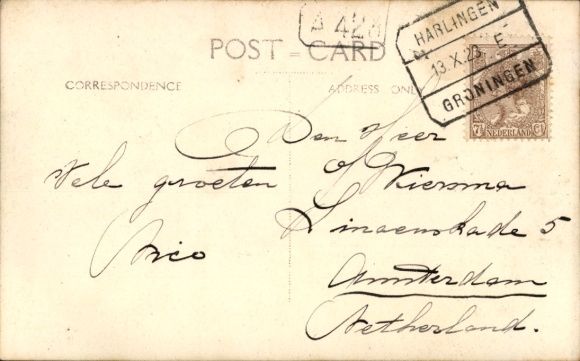 A 428
HARLINGEN
13.X.23 E
GRONINGEN
POST CARD
CORRESPONDENCE
ADDRESS ONLY
7½ NEDERLAND Ct
Den Heer
Vele groeten
Nico
J Wiersma
Linaeuskade 5
Amsterdam
Netherland.